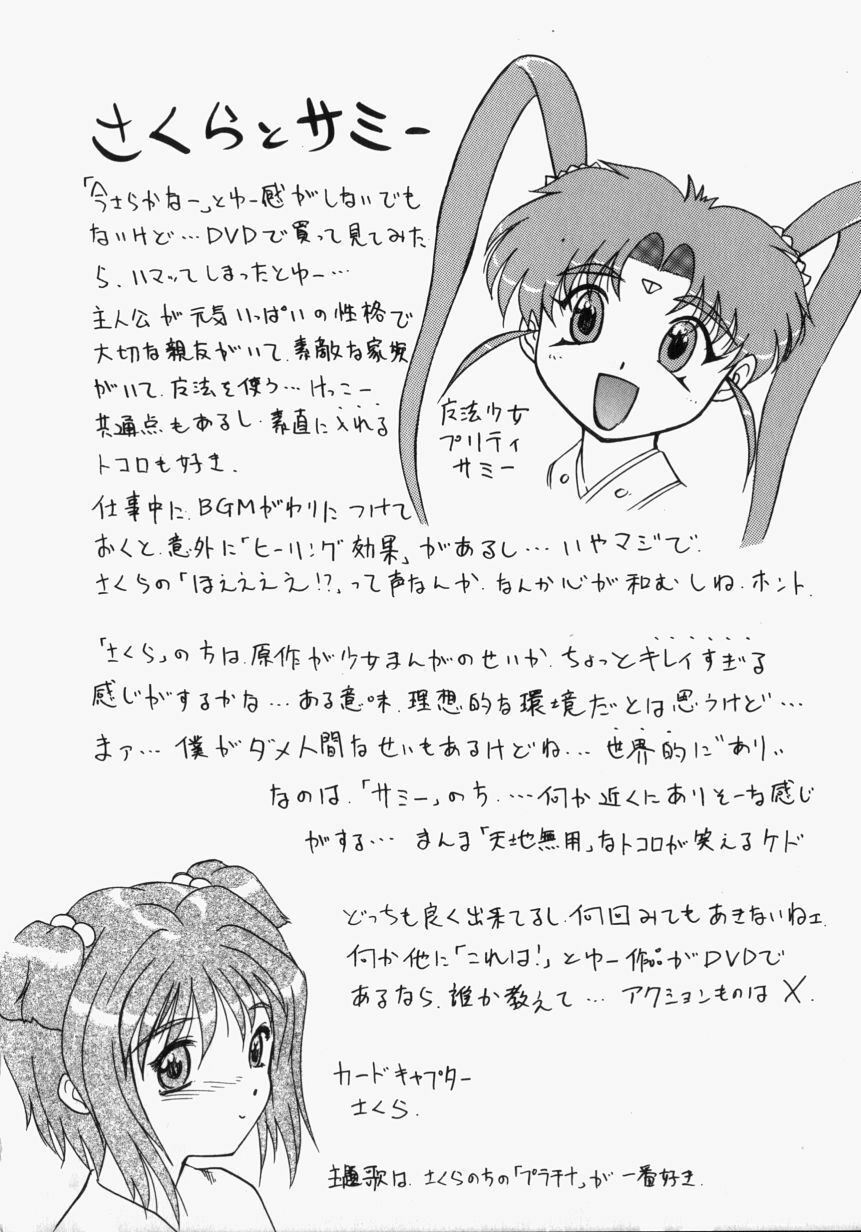 さくらとサミー
「今さらかなー」とゆー感がしないでも
ないけど…DVDで買って見てみた
ら、ハマッてしまったとゆー…
主人公が元気いっぱいの性格で
大切な親友がいて、素敵な家族
がいて、友法を使う…けっこー
共通点もあるし、素直に入れる
トコロも好き。
仕事中に、BGMがわりにつけて
おくと、意外に「ヒーリング効果」があるし…いやマジで。
さくらの「ほええええ!?」って声なんか、なんか心が和むしね、ホント。
友法少女
プリティ
サミー
「さくら」の方は、原作が少女まんがのせいか、ちょっとキレイすぎる
感じがするかな…ある意味、理想的な環境だとは思うけど…
まァ…僕がダメ人間なせいもあるけどね…世界的に"あり"
なのは、「サミー」のち、…何か近くにありそーな感じ
がする…まんま「天地無用」なトコロが笑えるケド
どっちも良く出来てるし、何回みてもあきないねェ
何か他に「これは!」とゆー作品がDVDで
あるなら、誰か教えて…アクションものはX.
カードキャプター
さくら.
主題歌は、さくらのちの「プラチナ」が一番好き.